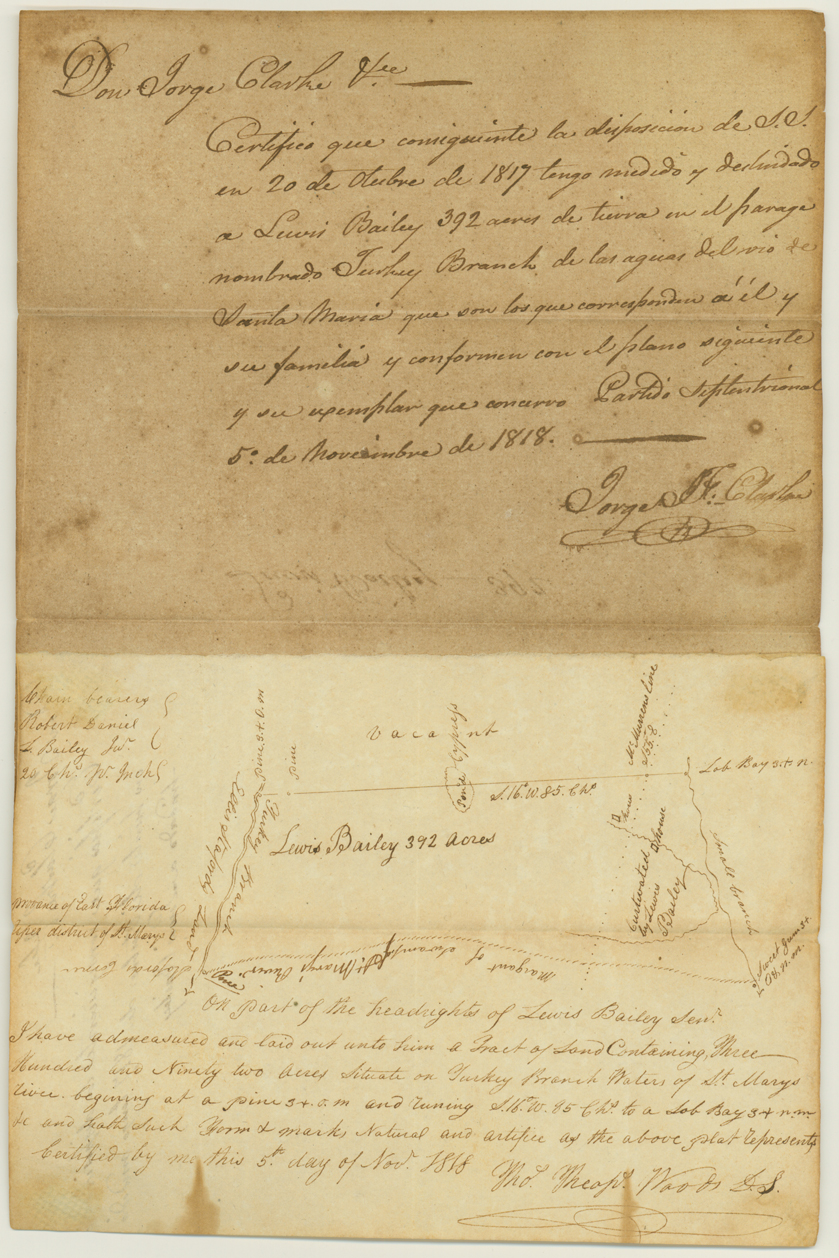 Don Jorge Clarke &ce
Certifico que consiguiente la disposicion de S.S.
en 20 de Otubre de 1817 tengo medido y deslindado
a Lewis Bailey 392 acres de tierra en el parage
nombrado Turkey Branch de las aguas del rio de
Santa Maria que son los que corresponden á él y
su familia y conformen con el plano siguiente
y su exemplar que concervo Partido Septentrional
5º de Noviembre de 1818.
Jorge J. F. Clarke
Lewis Bailey 392
Chain bearers
Robert Daniel
L Bailey Junr
20 Chs pr Inch
Pine 3 + O. M
Pine
Vacant
Pond Cypress
McMurrens line
S 55. E
Lob Bay 3 + n.
S. 16. W. 85. Chs
Turkey Branch
Land
Lewis Bailey 392 Acres
House
house
Cultivated
by Lewis
Bailey
Small
province of East Florida
uper district of St Marys
Pine
St Marys River
Margant of Swamp
Sweet Gum 3 +
On part of the headrights of Lewis Bailey Senr.
I have admeasured and laid out unto him a Tract of Land Containing Three
Hundred and Ninety two Acres Situate on Turkey Branch Waters of St. Marys
river. begining at a pine 3 + o. m and runing S. 16. W. 85 Chs to a Lob Bay 3 + n. m
&c and hath Such Form & marks Natural and artifice as the above plat represents
Certified by me this 5th day of Novr. 1818
Tho. Theops. Woods D.S.